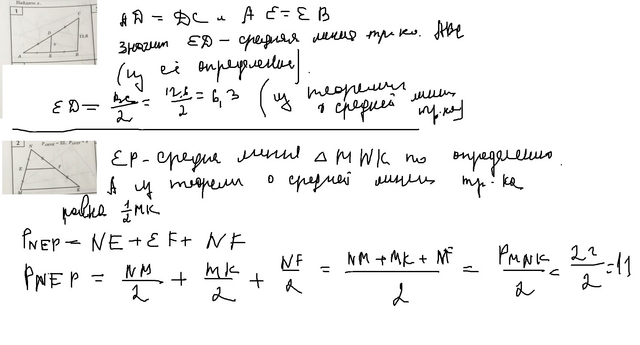 Найдите x.
1
C
D
12,6
x
A
E
B
AD = DC и AE = EB
значит ED – средняя линия тр.ка. ABC
(из её определения).
ED = BC/2 = 12,6/2 = 6,3 (из теоремы о средней линии тр.ка)
2
N
E
F
M
K
EP – средняя линия Δ MNK по определению.
А из теоремы о средней линии тр-ка
равна 1/2 MK
P NEP = NE + EF + NF
P NEP = NM/2 + MK/2 + NF/2 = NM + MK + NF/2 = P MNK/2 = 22/2 = 11